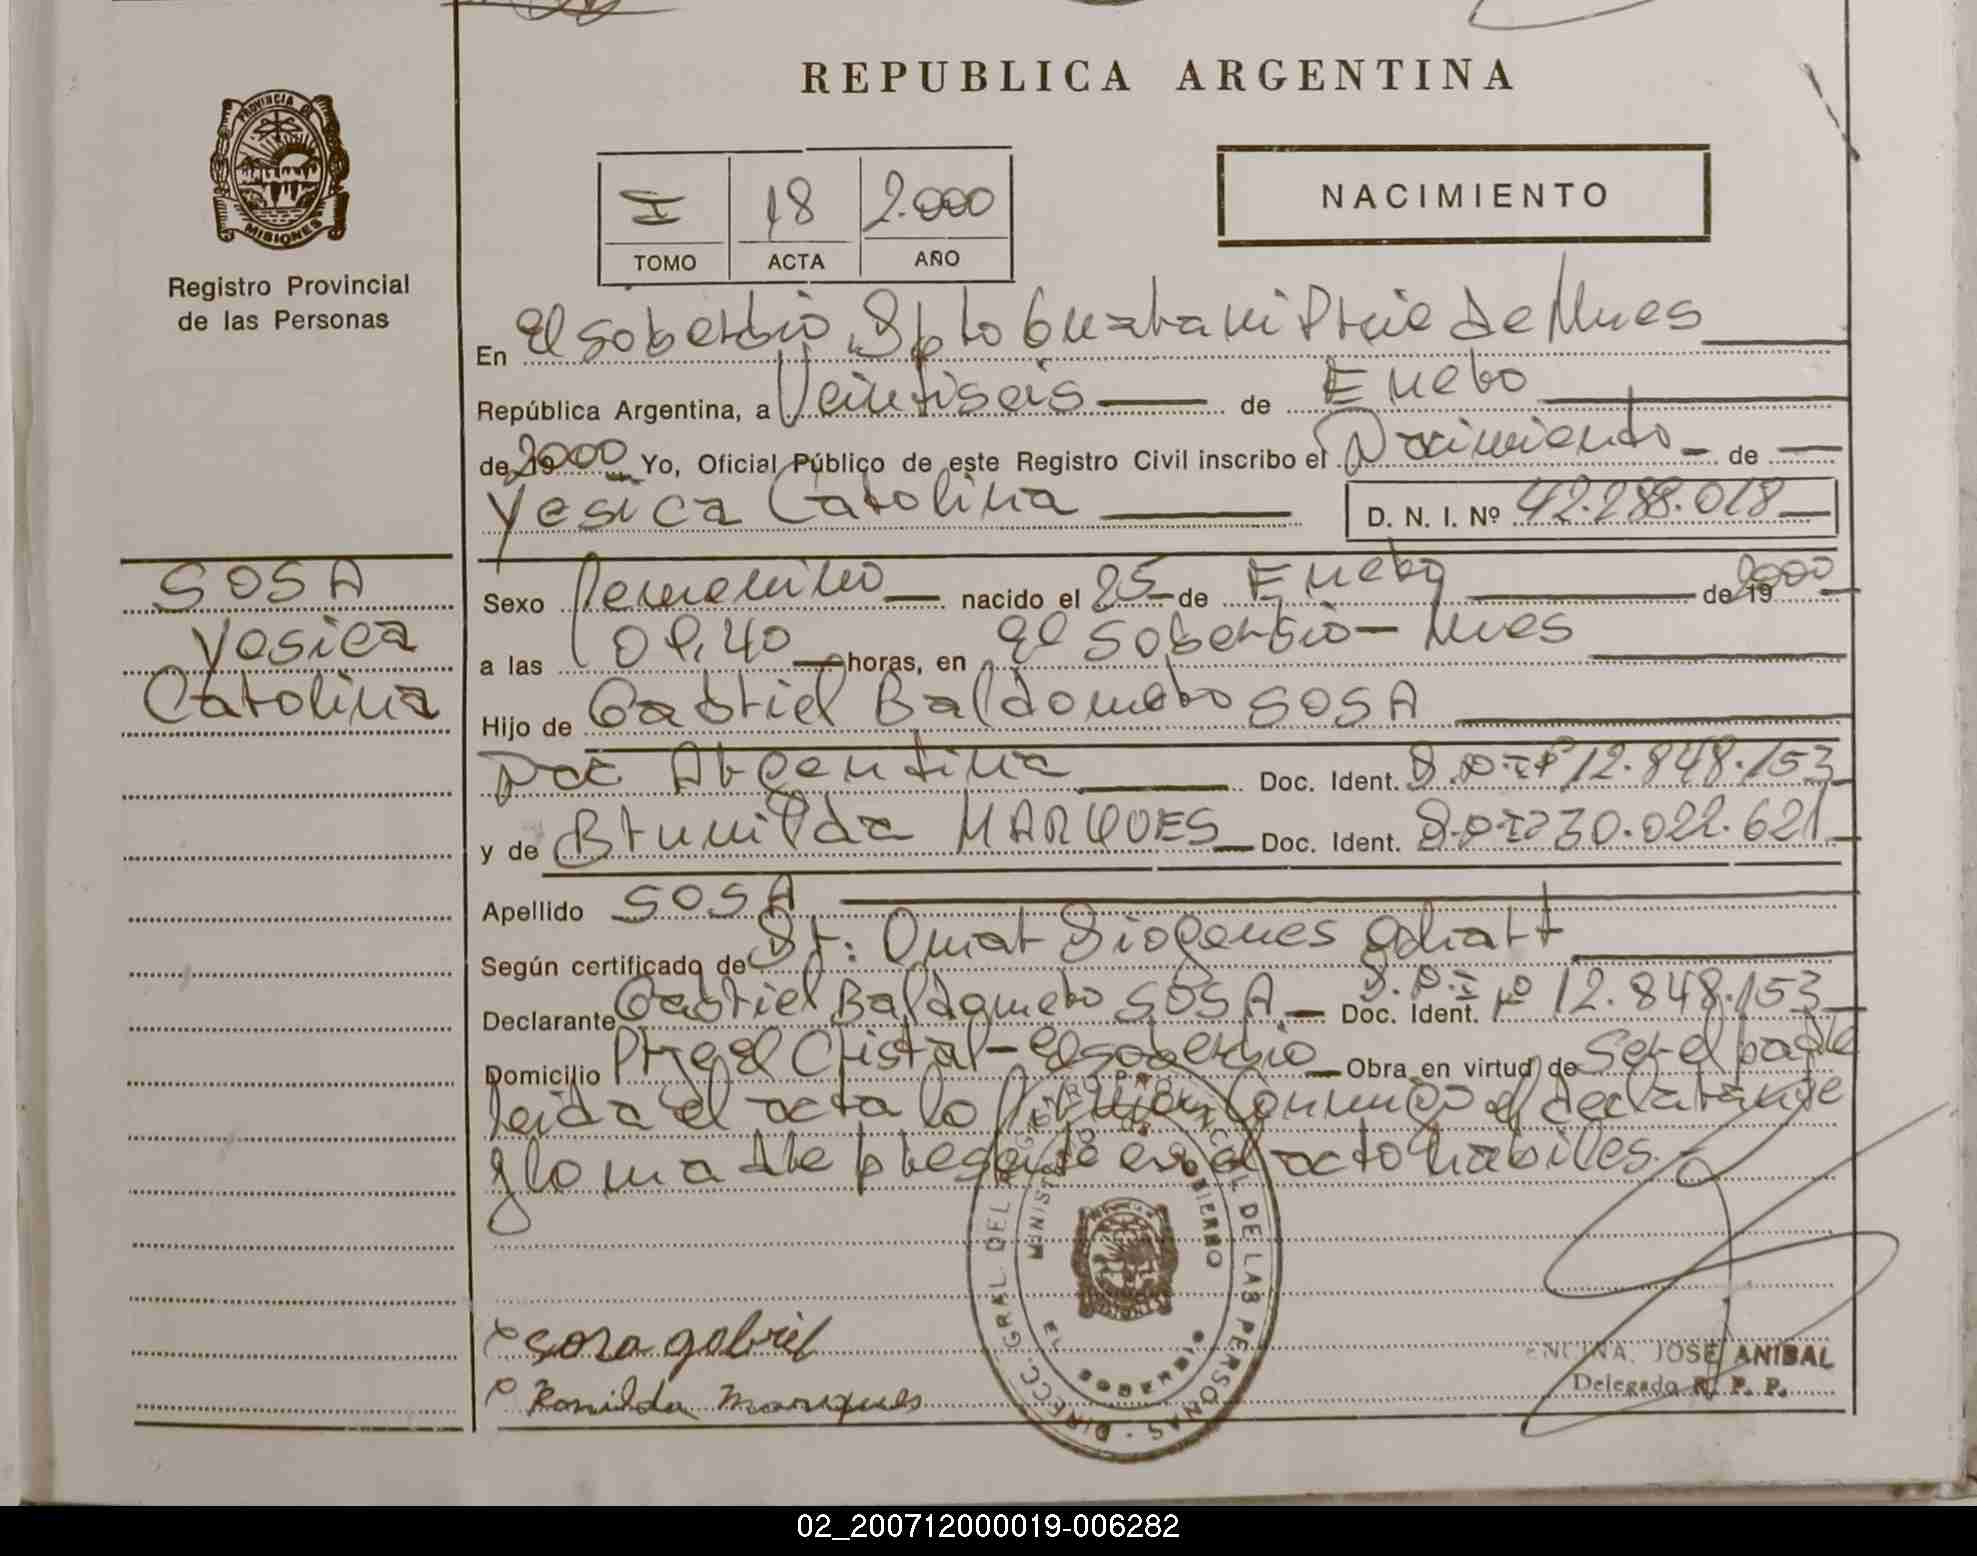 REPUBLICA ARGENTINA
PROVINCIA DE
MISIONES
Registro Provincial
de las Personas
I 18 2.000
TOMO ACTA AÑO
NACIMIENTO
En El Soberbio, Dpto Guarani Pcie de Mnes
República Argentina, a Veintiseis de Enero
de 2000 Yo, Oficial Público de este Registro Civil inscribo el Nacimiento de
Yesica Carolina D. N. I. Nº 42.288.018
SOSA
Yesica
Carolina
Sexo Femenino nacido el 25 de Enero de 19 2000
a las 01,40 horas, en El Soberbio - Mnes
Hijo de Gabriel Baldomero SOSA
Nac Argentina Doc. Ident. D.N.I Nº 12.848.153
y de Brunilda MARQUES Doc. Ident. D.N.I Nº 30.022.621
Apellido SOSA
Según certificado de Dr: Omar Diogenes
Declarante Gabriel Baldomero SOSA Doc. Ident. D.N.I Nº 12.848.153
Domicilio Pje El Cristal - El Soberbio Obra en virtud de Ser el padre
Leida el acta la firman conmigo el declarante
y la madre presente en el acto habiles.
DIRECC. GRAL. DEL REGISTRO PROVINCIAL DE LAS PERSONAS
MINISTERIO GOBIERNO
EL SOBERBIO
sosa gabriel
Romilda Marques
ENCINA, JOSE ANIBAL
Delegado R. P. P.
02_200712000019-006282